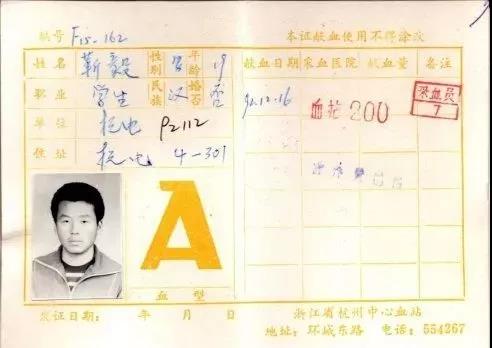 献号 Fis-162
姓名 靳毅 性别 男 年龄 19
职业 学生 民族 汉 婚否 否
单位 杭电 92112
住址 杭电 4-301
A
血型
发证日期： 年 月 日
本证献血使用不得涂改
献血日期 采血医院 献血量 备注
92.12.16 血站 200 采血员 7
浙江省杭州中心血站
地址：环城东路 电话：554267